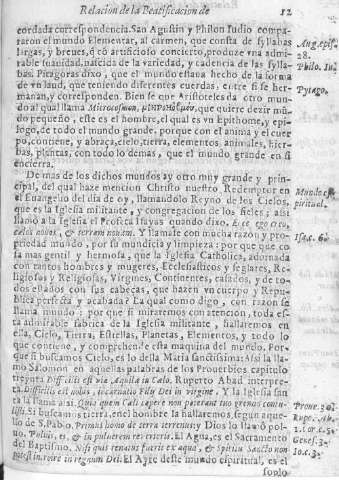 Relacion de la Beatificacion de
12
cordada correspondencia. San Agustin y Philon Iudio compa-
raron el mundo Elementar, al carmen, que consta de syllabas
largas, y breues, q̃ cõ artificioso concierto, produze vna admi-
rable suauidad, nacida de la variedad, y cadencia de las sylla-
bas. Pitagoras dixo, que el mundo estaua hecho de la forma
de vn laud, que teniendo diferentes cuerdas, entre si se her-
manan, y corresponden. Bien se que Aristoteles da otro mun-
do al qual llama Microcosmon, que quiere dezir mũ
do pequeño, este es el hombre, el qual es vn Epithome, y epi-
logo, de todo el mundo grande, porque con el anima y el cuer
po, contiene, y abraça, cielo, tierra, elementos, animales, hier-
bas, plantas, con todo lo demas, que el mundo grande en si
encierra.
De mas de los dichos mundos ay otro muy grande y prin-
cipal, del qual haze mencion Christo nuestro Redemptor en
el Euangelio del dia de oy, llamandolo Reyno de los Cielos,
que es la Iglesia militante, y congregacion de los fieles; assi
llamò a la Iglesia el Profeta Isayas quando dixo, Ecce ego creo,
cælos nouos, & terram nouam. Y llamase con mucha razon y pro-
priedad mundo, por su mundicia y limpieza: por que que co-
sa mas gentil y hermosa, que la Iglesia Catholica, adornada
con tantos hombres y mugeres, Ecclesiasticos y seglares, Re-
ligiosos y Religiosas, Virgines, Continentes, casados, y de to-
dos estados con sus cabeças, que hazen vn cuerpo y Repu-
blica perfecta y acabada? La qual como digo, con razon se
llama mundo: por que si miraremos con atencion, toda es-
ta admirable fabrica de la Iglesia militante, hallaremos en
ella, Cielo, Tierra, Estrellas, Planetas, Elementos, y todo lo
que contiene, y comprehende esta maquina del mundo. Por-
que si buscamos Cielo, es lo della Maria sanctissima: Assi la lla-
mo Salomon en aquellas palabras de los Prouerbios capitulo
treynta Difficilis est via, Aquilæ in Cælo. Ruperto Abad interpre-
ta Difficilis est nobis, incarnatio Filij Dei in virgine. Y la Iglesia san
ta la llama assi. Quia quem Cæli capere non poterant tuo gremio contu-
listi. Si buscamos tierra, en el hombre la hallaremos, segun aque-
llo de S. Pablo. Primus homo de terra terrenus y Dios lo llamò pol-
uo. Puluis, es, & in puluerem reuerteris. El Agua, es el Sacramento
del Baptismo. Nisi quis renatus fuerit ex aqua, & Spiritu Sancto non
potest introire in regnum Dei. El Ayre deste mundo espiritual, es el
soplo
Aug. epis.
28.
Philo. Iu.
Pytago.
Mundo es-
piritual.
Isa. c. 6
Proue. 30.
Rupe.
1. Cor.
Genes. 3
Io. c. 3.